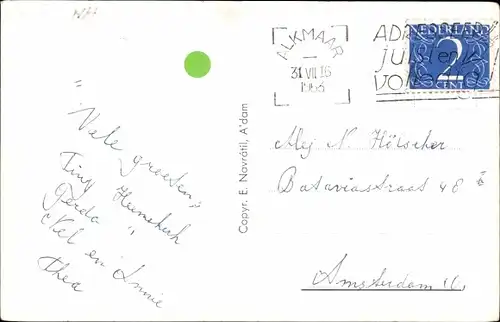 ALKMAAR
31 VII 16
1953
NEDERLAND
2
CENT
Vele groeten,
Tiny Heemskerk
Gerda "
Nel en Annie
Thea
Copyr. E. Navrátil, A'dam
Mej N. Hölscher
Bataviastraat 48 I
Amsterdam O.